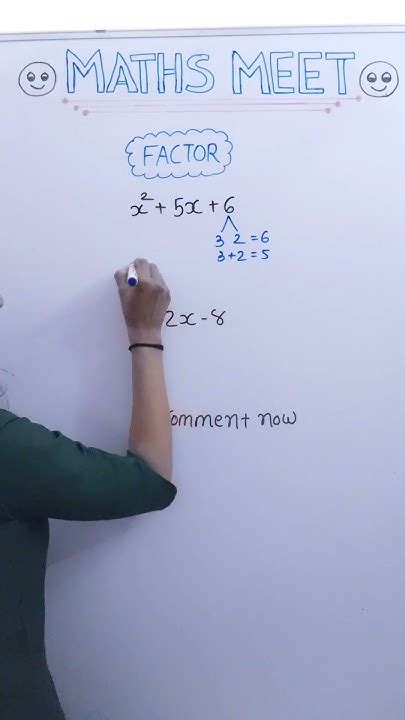 MATHS MEET
FACTOR
x² + 5x + 6
3 2 = 6
3 + 2 = 5
2x - 8
omment now